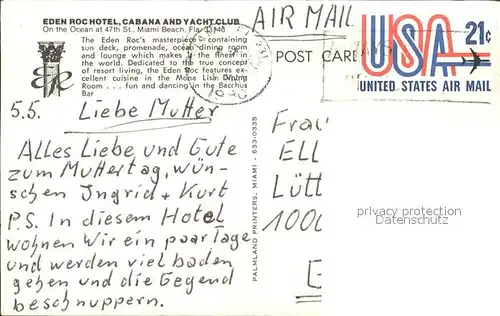 EDEN ROC HOTEL, CABANA AND YACHT CLUB
On the Ocean at 47th St., Miami Beach, Fla. 33140
The Eden Roc's masterpiece containing
sun deck, promenade, ocean dining room
and lounge which makes the finest in
the world. Dedicated to the true concept
of resort living, the Eden Roc features ex-
cellent cuisine in the Mona Lisa Dining
Room . . . fun and dancing in the Bacchus
Bar
AIR MAIL
POST CARD
USA 21¢
UNITED STATES AIR MAIL
5.5. Liebe Mutter
Alles Liebe und Gute
zum Muttertag, wün-
schen Ingrid + Kurt
P.S. In diesem Hotel
wohnen Wir ein paar Tage
und werden viel baden
gehen und die Gegend
beschnuppern.
PALMLAND PRINTERS, MIAMI - 633-0335
Frau
ELL
Lütt
1000
privacy protection
Datenschutz